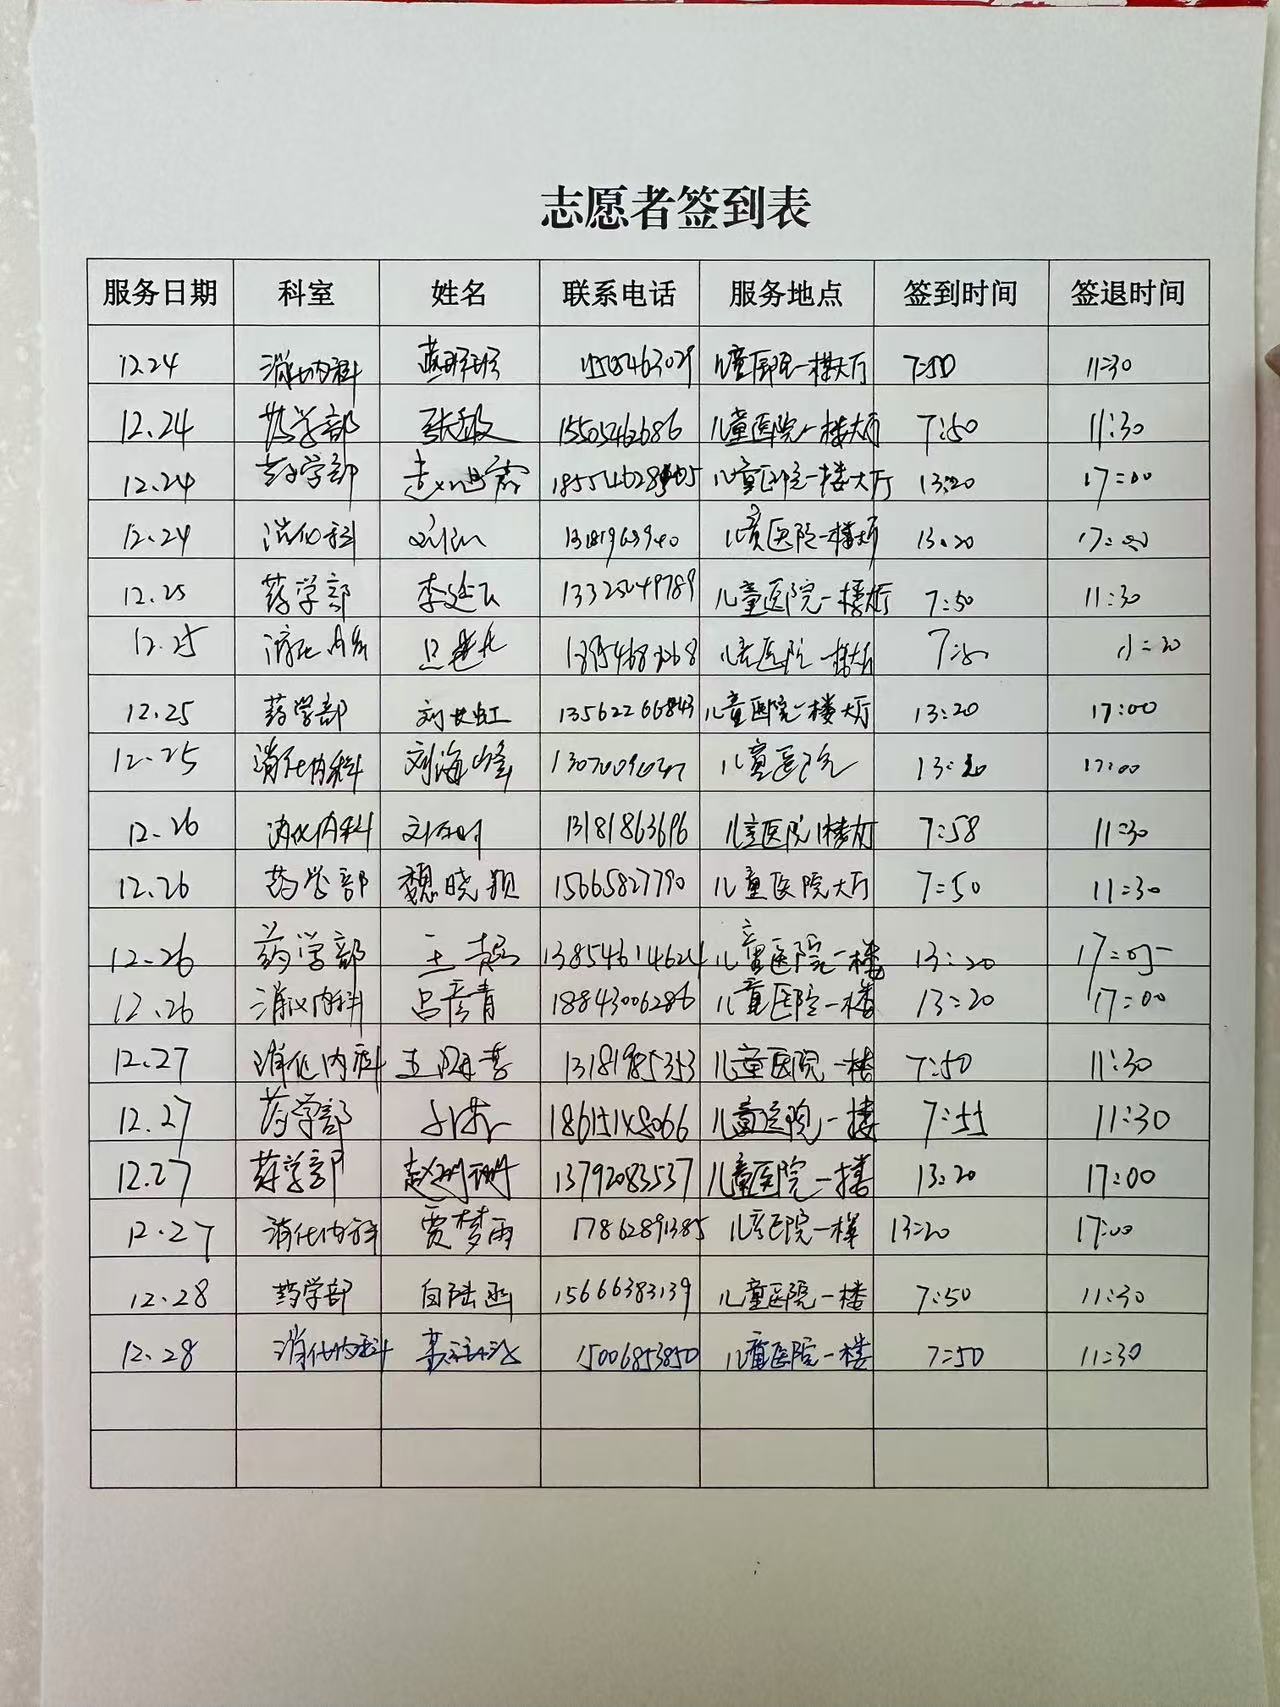 志愿者签到表
服务日期 科室 姓名 联系电话 服务地点 签到时间 签退时间
12.24 消化内科 儿童医院一楼大厅 7:50 11:30
12.24 药学部 张敏 15505462686 儿童医院一楼大厅 7:50 11:30
12.24 药学部 儿童医院一楼大厅 13:20 17:00
12.24 消化科 儿童医院一楼大厅 13:20 17:00
12.25 药学部 李延飞 13325049789 儿童医院一楼大厅 7:50 11:30
12.25 消化内科 儿童医院一楼大厅 7:50 11:30
12.25 药学部 刘长虹 13562266843 儿童医院一楼大厅 13:20 17:00
12.25 消化内科 刘海峰 儿童医院 13:20 17:00
12.26 消化内科 13181863696 儿童医院1楼大厅 7:58 11:30
12.26 药学部 魏晓颖 15665827790 儿童医院大厅 7:50 11:30
12.26 药学部 王 13854614624 儿童医院一楼 13:20 17:05
12.26 消化内科 吕彦青 18843006286 儿童医院一楼 13:20 17:00
12.27 消化内科 13181985353 儿童医院一楼 7:50 11:30
12.27 药学部 儿童医院一楼 7:55 11:30
12.27 药学部 赵珊珊 13792083537 儿童医院一楼 13:20 17:00
12.27 消化内科 贾梦雨 17862891385 儿童医院一楼 13:20 17:00
12.28 药学部 白陆函 15666383139 儿童医院一楼 7:50 11:30
12.28 消化内科 15006853850 儿童医院一楼 7:50 11:30